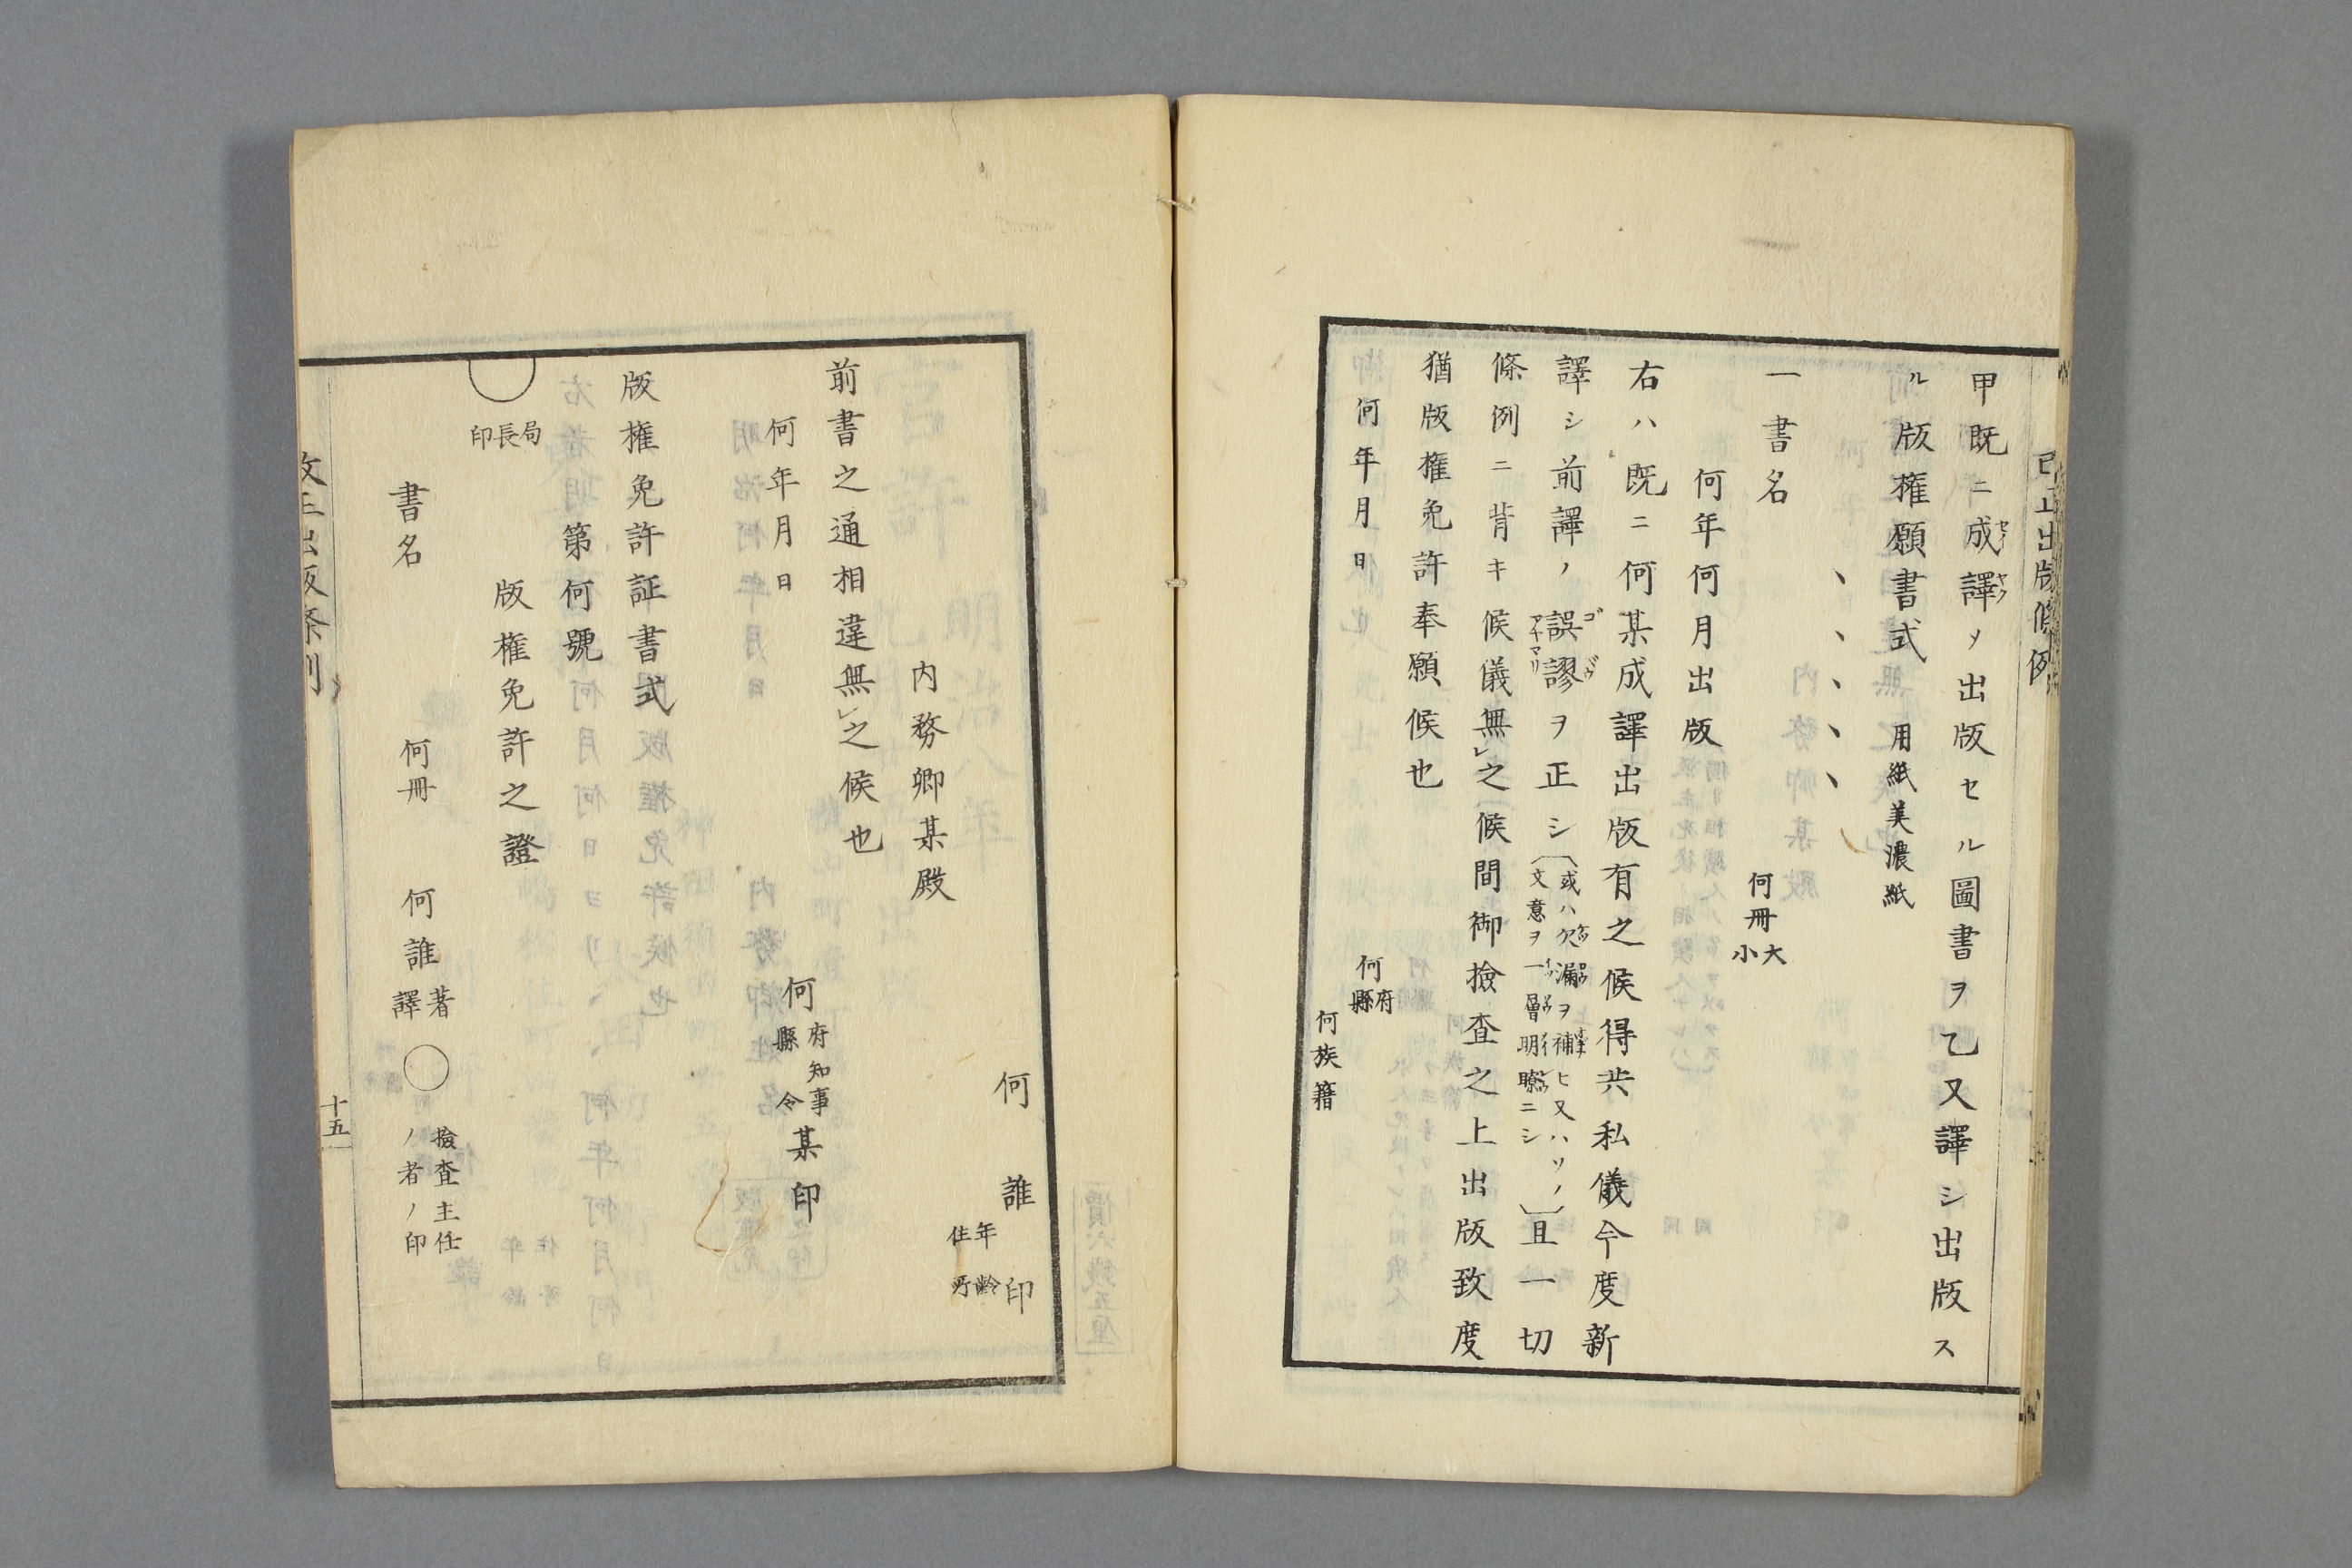 甲既ニ成譯ヲ出版セル圖書ヲ乙又譯シ出版ス
ル版権願書式 用紙美濃紙
、、、、、
一書名 何冊 大小
何年何月出版
右ハ既ニ何某成譯出版有之候得共私儀今度新
譯シ前譯ノ誤謬ヲ正シ〔或ハ欠漏ヲ補ヒ又ハソノ
文意ヲ一層明瞭ニシ〕且一切
條例ニ背キ候儀無レ之候間御撿査之上出版致度
猶版権免許奉願候也
何年月日
何府縣
何族籍
何誰印
年齢
住所
内務卿某殿
前書之通相違無レ之候也
何年月日
何府知事
縣令 某印
版権免許証書式
第何號
版権免許之證
局長印
書名 何冊 何誰著
譯
撿査主任
ノ者ノ印
十五